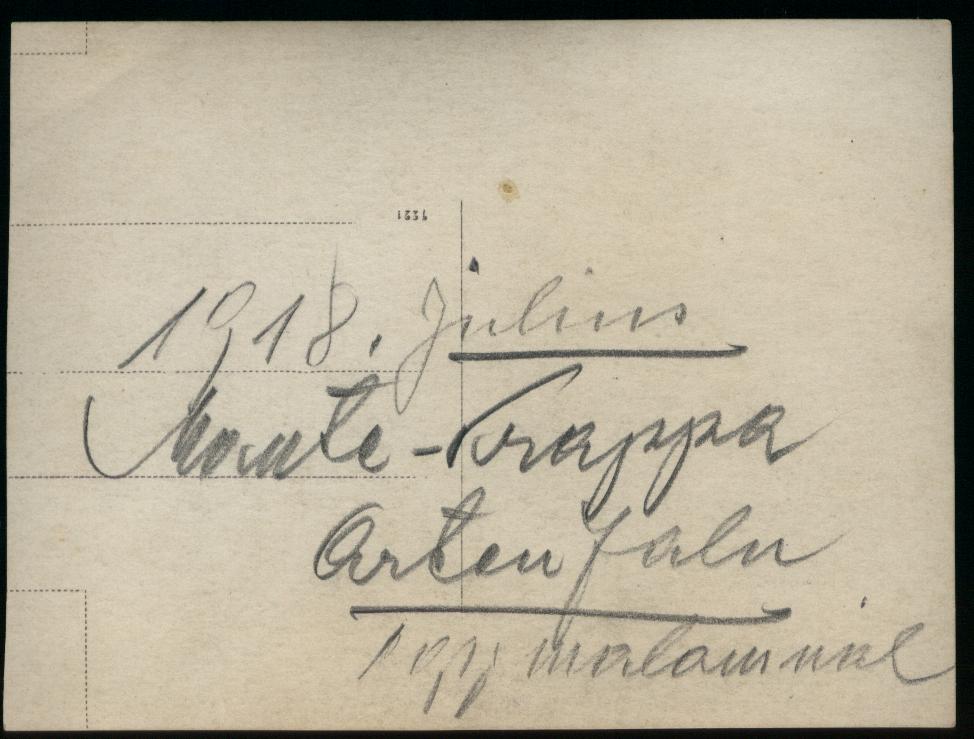 1221
1918. Július
Monte-Grappa
Arten falu
egy malomnál